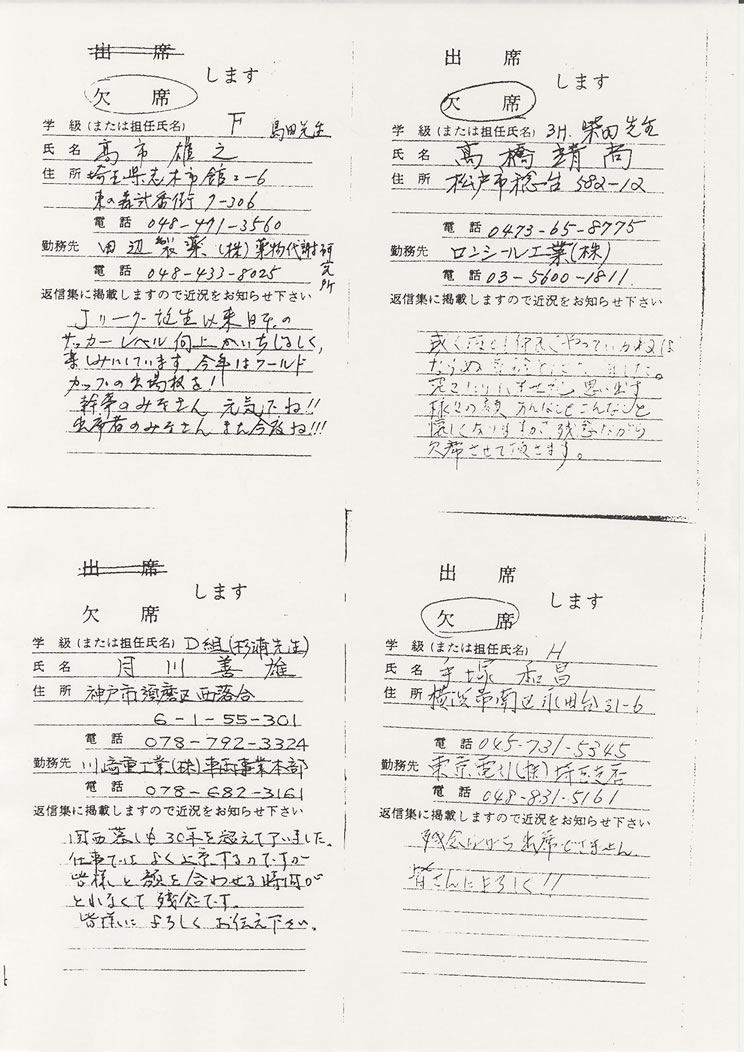 出席
します
欠席
学級(または担任氏名) F 島田先生
氏名 高市雄之
住所 埼玉県志木市館2-6
東の森弐番街7-306
電話 048-471-3560
勤務先 田辺製薬(株)薬物代謝研究所
電話 048-433-8025
返信集に掲載しますので近況をお知らせ下さい
Jリーグ誕生以来日本の
サッカーレベル向上がいちじるしく、
楽しみにしています。今年はワールド
カップの出場枚を!
幹事のみなさん 元気だね!!
出席者のみなさん また今度ね!!!
出席
します
欠席
学級(または担任氏名) 3H. 柴田先生
氏名 高橋靖尚
住所 松戸市稔台582-12
電話 0473-65-8775
勤務先 ロンシール工業(株)
電話 03-5600-1811
返信集に掲載しますので近況をお知らせ下さい
思い出す
様々の顔 あんなことこんなこと
懐しくなりますが、残念ながら
欠席させて頂きます。
出席
します
欠席
学級(または担任氏名) D組(杉浦先生)
氏名 月川善雄
住所 神戸市須磨区西落合
6-1-55-301
電話 078-792-3324
勤務先 川崎重工業(株)車両事業本部
電話 078-682-3161
返信集に掲載しますので近況をお知らせ下さい
関西暮しも30年を超えて了いました。
仕事ではよく上京するのですが
皆様と顔を合わせる時間が
とれなくて残念です。
皆様によろしくお伝え下さい。
出席
します
欠席
学級(または担任氏名) H
氏名 手塚和昌
住所 横浜市南区永田台31-6
電話 045-731-5345
勤務先 東京電引(株)埼玉支店
電話 048-831-5161
返信集に掲載しますので近況をお知らせ下さい
残念ながら出席できません
皆さんによろしく!!